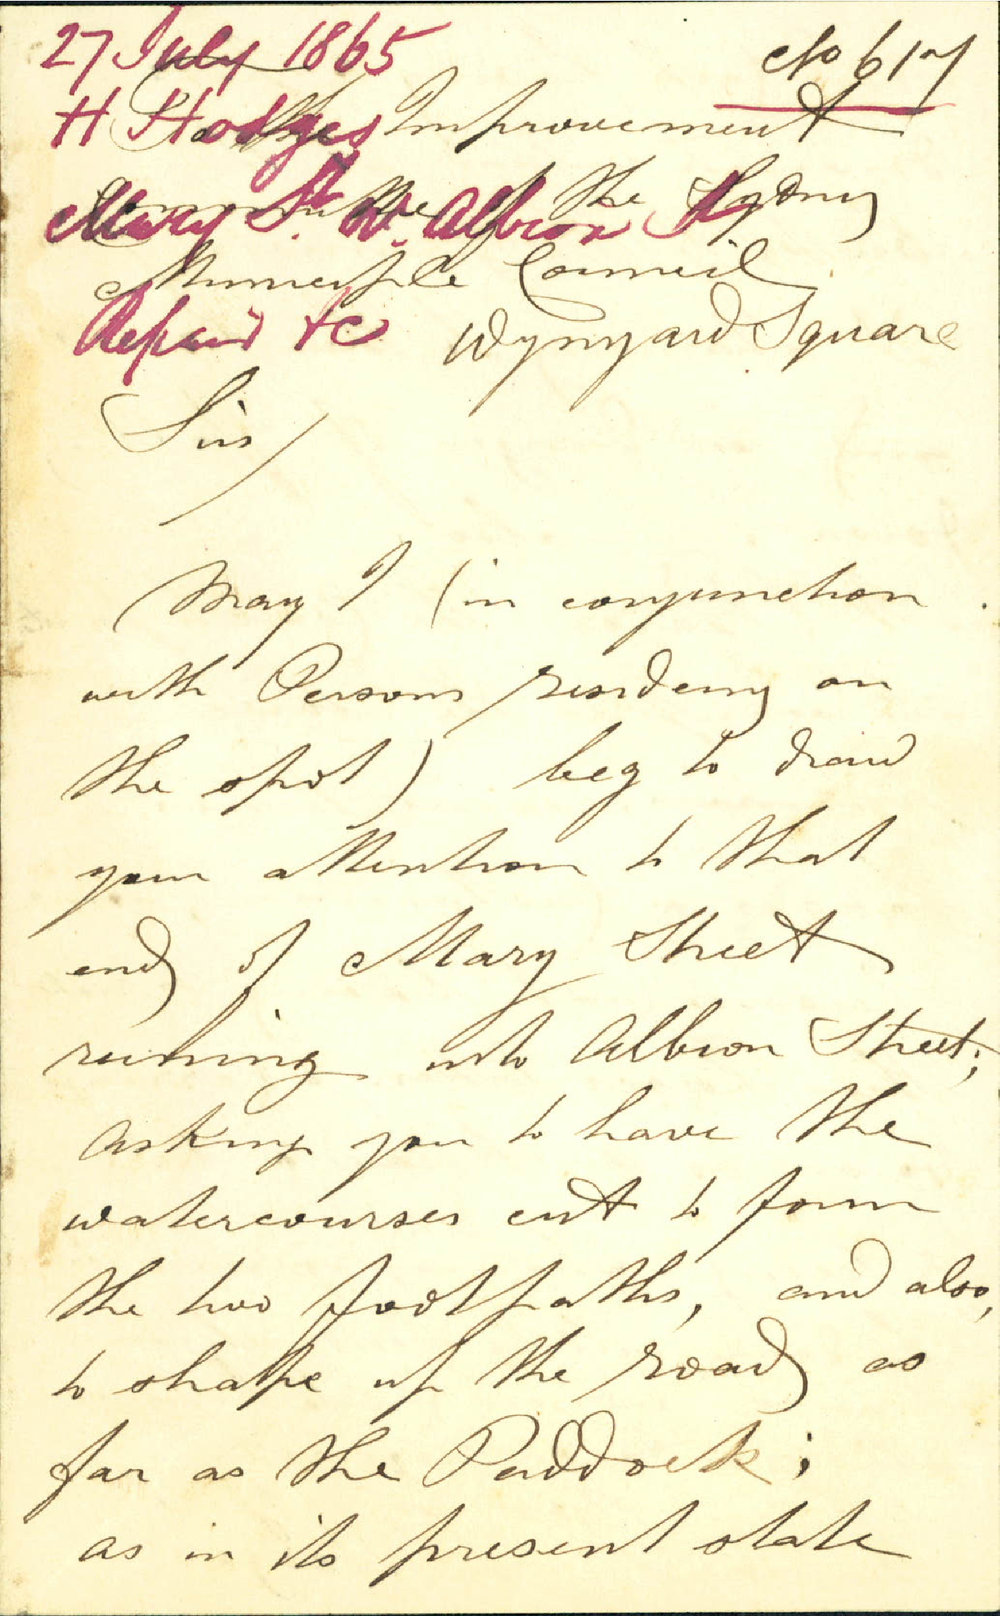 27 July 1865
No 617
H Hodges
To the Improvement
Mary St. W. Albion St
Committee of the Sydney
Municiple Council
Repair &c
Wynyard Square
Sirs/
May I (in conjunction
with Persons residing on
the spot) beg to draw
your attention to that
end of Mary Street
running into Albion Street;
asking you to have the
watercourses cut to form
the two footpaths, and also,
to shape up the road as
far as the Paddock;
as in its present state